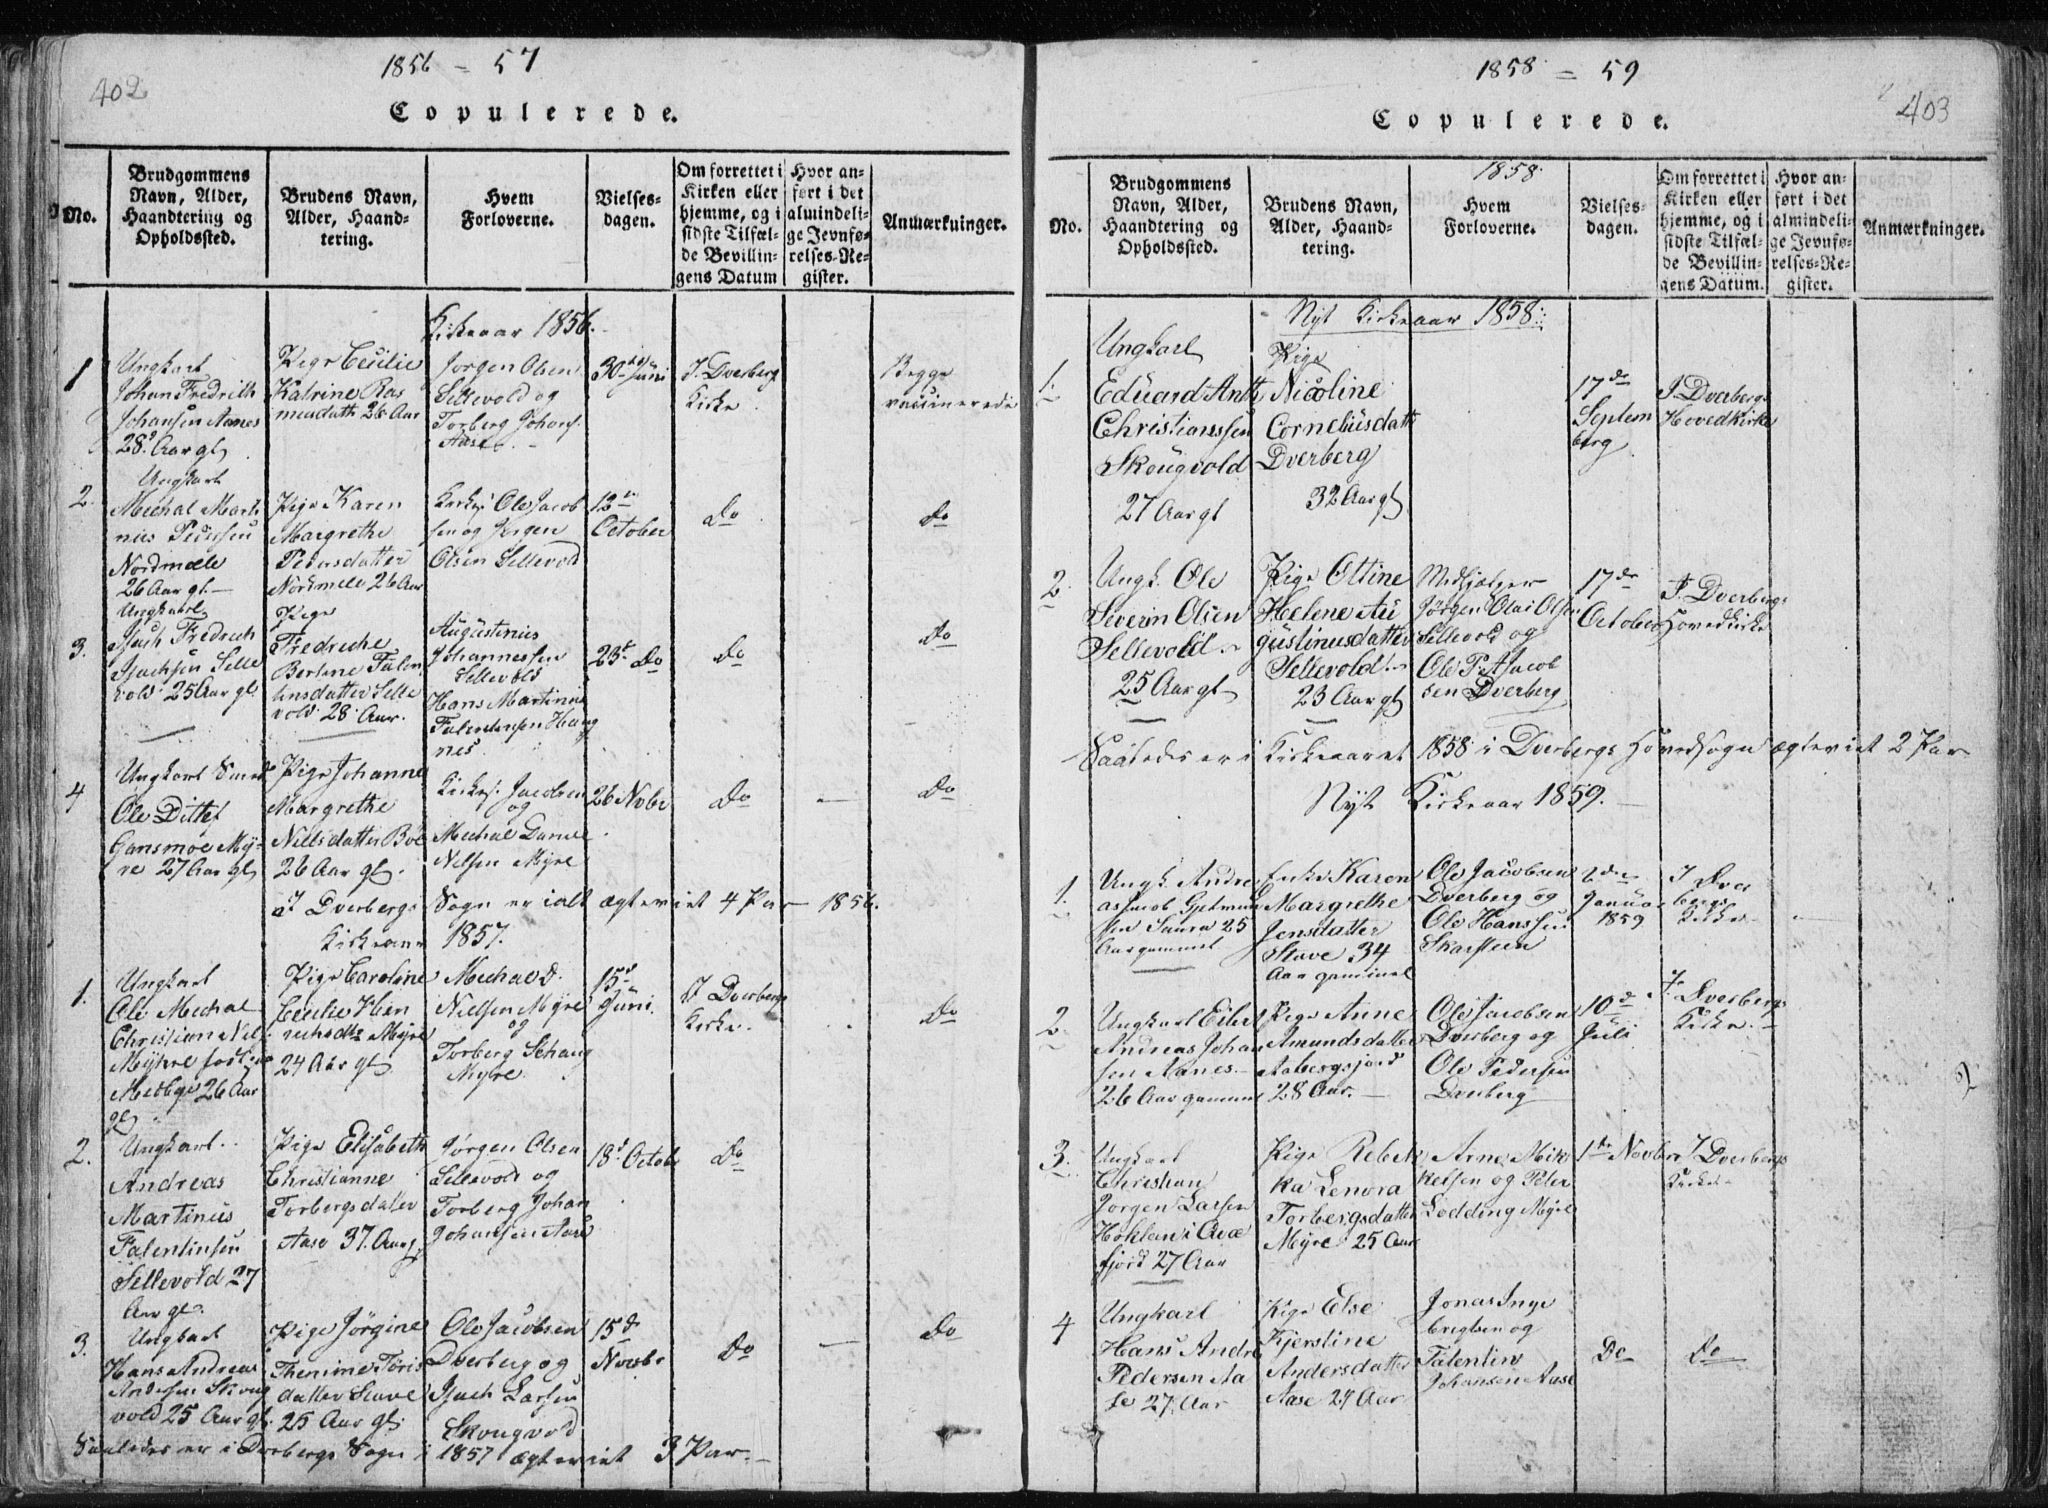 402
1856 – 57
Copulerede.
No.
Brudgommens
Navn, Alder,
Haandtering og
Opholdssted.
Brudens Navn,
Alder, Haand-
tering.
Hvem
Forloverne.
Vielses-
dagen.
Om forrettet i
Kirken eller
hjemme, og i
sidste Tilfæl-
de Bevillin-
gens Datum
Hvor an-
ført i det
almindeli-
ge Jevnfø-
relses-Re-
gister.
Anmærkninger.
Kirkeaar 1856.
1
Ungkarl
Johan Fredrik
Johansen Aanes
28 Aar gl
Pige Cecilie
Katrine Ras
musdatt 26 Aar
Jørgen Olsen
Sellevold og
Torberg Johans.
Aase
30te Juni
I Dverberg
Kirke
Begge
vaccinerede
2.
Ungkarl
Mechal Mart
nius Pedersen
Nordmele
26 Aar gl.
Pige Karen
Margrethe
Pedersdatter
Nordmele 26 Aar
Kirkes. Ole Jacob
sen og Jørgen
Olsen Sellevold
12te
October
Do
–
Do
3.
Ungkarl
Isach Fredrich
Isachsen Selle
vold 25 Aar gl.
Pige
Fredriche
Berline Falen
tinsdatter Selle
vold 28 Aar.
Augustinius
Johannessen
Sellevold
Hans Martinus
Falentinsen Haug
nes.
23de Do
Do
Do
4
Ungkarl Smed
Ole Ditlef
Gansmoe My-
re 27 Aar gl
Pige Johanne
Margrethe
Nielsdatter Bøe
26 Aar gl.
Kirkes. Jacobsen
og
Mechal Daniel
Nelsen Myre
26 Novbr
Do
–
Do
I Dverbergs Sogn er ialt ægteviet 4 Par – 1856.
Kirkeaar 1857.
1.
Ungkarl
Ole Mechal
Christian Niels
Myhre
26 Aar
gl
Pige Caroline
Cecilie Hen
richsdtr Myre
24 Aar gl
Mechal D.
Nielsen Myre
og
Torberg Schaug
Myre
15de
Juni.
I Dverbergs
Kirke.
Do
2.
Ungkarl
Andreas
Martinus
Falentinsen
Sellevold 27
Aar gl.
Pige Elisabeth
Christianne
Torbergsdatter
Aase 37 Aar gl
Jørgen Olsen
Sellevold og
Torberg Johan
Johansen Aase
18de Octob
Do
3.
Ungkarl
Hans Andreas
Andersen Skoug
vold 25 Aar gl.
Pige Jørgine
Themine Toris
datter Stave
25 Aar gl.
Ole Jacobsen
Dverberg og
Isach Larsen
Skougvold
15de
Novbr
Do
–
Do
Saaledes er i Dverbergs Sogn i 1857 ægteviet 3 Par.
403
1858 = 59
Copulerede.
No.
Brudgommens
Navn, Alder,
Haandtering og
Opholdssted.
Brudens Navn,
Alder, Haand-
tering.
1858
Hvem
Forloverne.
Vielses-
dagen.
Om forrettet i
Kirken eller
hjemme, og i
sidste Tilfæl-
de Bevillin-
gens Datum.
Hvor an-
ført i det
almindeli-
ge Jevnfø-
relses-Re-
gister.
Anmærkninger.
Nyt Kirkeaar 1858.
1.
Ungkarl
Eduard Antb
Christianssen
Skougvold
27 Aar gl
Pige
Nicoline
Corneliusdatt
Dverberg
32 Aar gl
17de
Septem
berg
I Dverbergs
Hovedkirke
2.
Ungk. Ole
Severin Olsen
Sellevold
25 Aar gl
Pige Ottine
Helene Au
gustinusdatter
Sellevold
23 Aar gl
Medhjælper
Jørgen Olai Olsen
Sellevold og
Ole P. A Jacob
sen Dverberg
17de
October
I. Dverbergs
Hovedkirke
Saaledes er i Kirkeaaret 1858 i Dverbergs Hovedsogn ægteviet 2 Par
Nyt Kirkeaar 1859.
1.
Ungk. Andre
as Jacob
sen Saura 25
Aar gammel
Enke Karen
Margrethe
Jensdatter
Stave 34
Aar gammel
Ole Jacobsen
Dverberg og
Ole Hanssen
Skarsteen
2den
Janua
1859
I Dver
bergs
Kirke
2
Ungkarl Eiler
Andreas Johan
sen Aanes
26 Aar gammel
Pige Anne
Amundsdatter
Aabergsjord
28 Aar.
Ole Jacobsen
Dverberg og
Ole Pedersen
Dverberg
10de
Juli
I. Dverbergs
Kirke.
2
3.
Ungkarl
Christian
Jørgen Larsen
fjord 27 Aar
Pige Rebek
ka Lenora
Torbergsdatter
Myre 25 Aar
Arne Mik
kelsen og Peter
Lodding Myre
1ste Novber
I Dverbergs
Kirke
4
Ungkarl
Hans Andre
Pedersen Aa
se 27 Aar
Pige Else
Kjerstine
Andersdatter
Aase 27 Aar
Jonas Inge
brigtsen og
Falentin
Johansen Aase
Do
Do